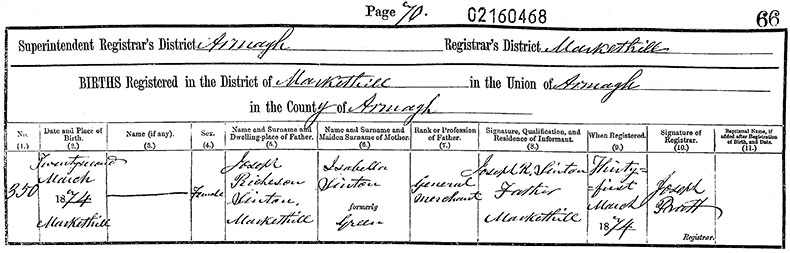 Page 70. 02160468 66
Superintendent Registrar's District Armagh Registrar's District Markethill
BIRTHS Registered in the District of Markethill in the Union of Armagh
in the County of Armagh
No. (1.)
Date and Place of Birth. (2.)
Name (if any). (3.)
Sex. (4.)
Name and Surname and Dwelling-place of Father. (5.)
Name and Surname and Maiden Surname of Mother. (6.)
Rank or Profession of Father. (7.)
Signature, Qualification, and Residence of Informant. (8.)
When Registered. (9.)
Signature of Registrar. (10.)
Baptismal Name, if added after Registration of Birth, and Date. (11.)
350
Twentysecond
March
1874
Markethill
Female
Joseph
Richeson
Sinton,
Markethill
Isabella
Sinton
formerly
Green
General
merchant
Joseph R. Sinton
Father
Markethill
Thirty-
first
March
1874
Joseph
Registrar.